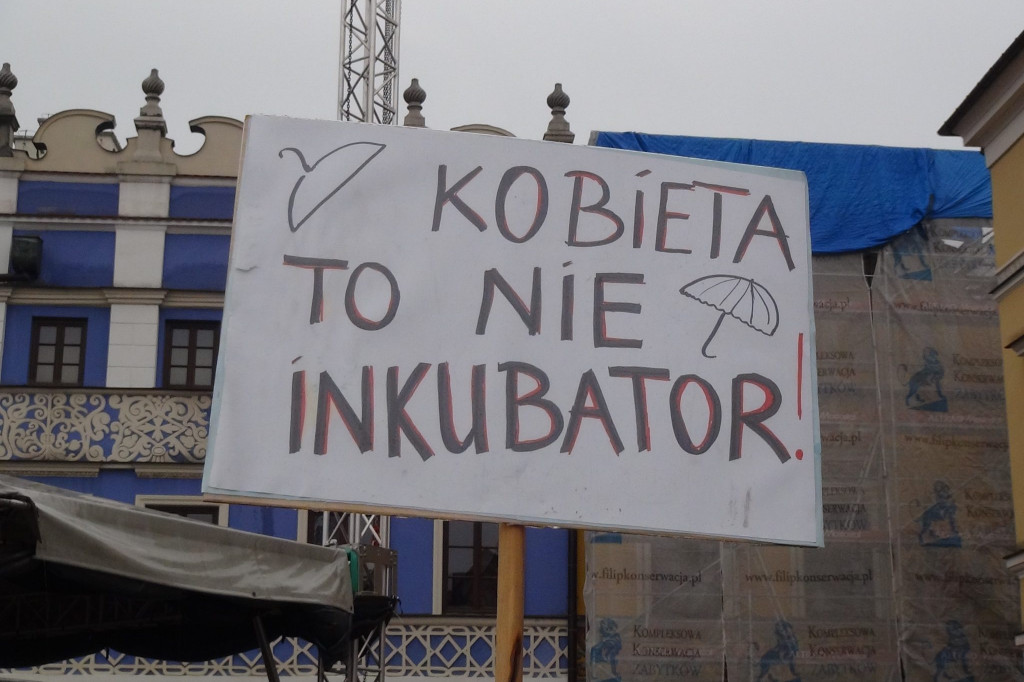 KOBIETA
TO NIE
INKUBATOR!
www.filipkonserwacja.pl
KOMPLEKSOWA
KONSERWACJA
ZABYTKÓW
www.filipkonserwacja.pl
www.filipkonserwacja.pl
KOMPLEKSOWA
KONSERWACJA
ZABYTKÓW
KOMPLEKSOWA
KONSERWACJA
ZABYTKÓW